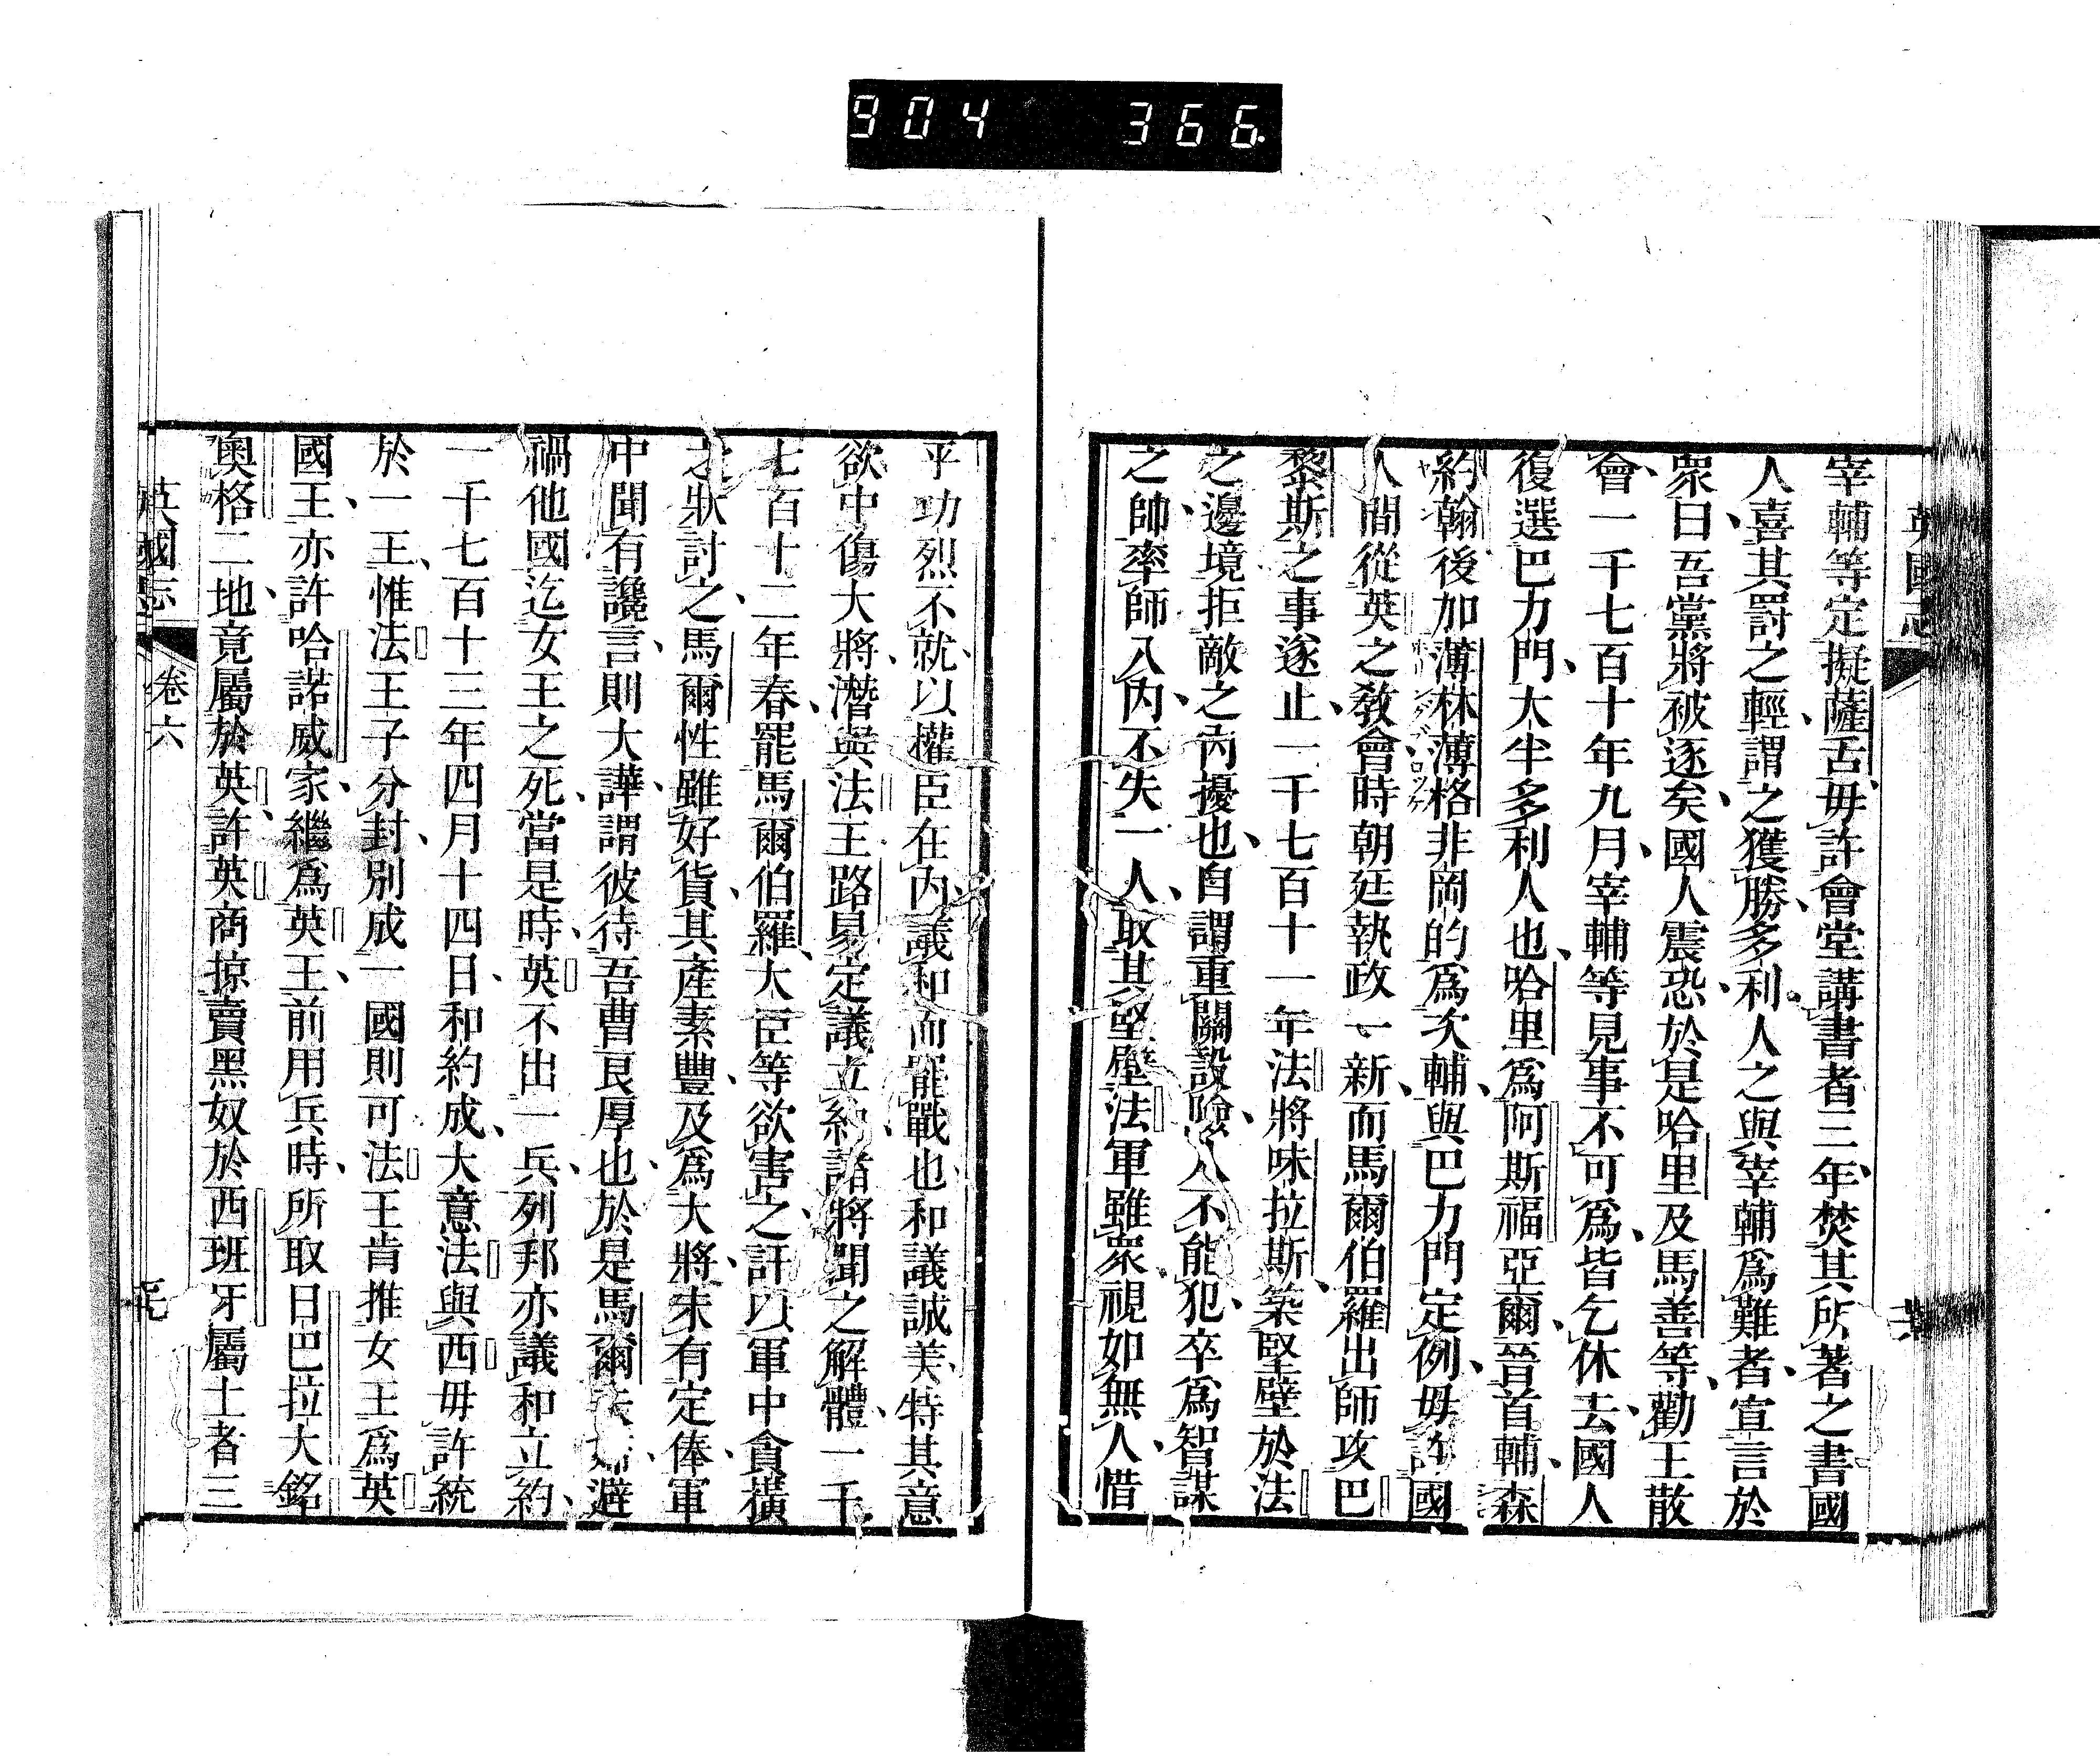 904 366
英國志
宰輔等定擬薩舌毋許會堂講書者三年焚其所著之書國
人喜其罰之輕謂之獲勝多利人之與宰輔爲難者宣言於
衆曰吾黨將被逐矣國人震恐於是哈里及馬善等勸王散
會一千七百十年九月宰輔等見事不可爲皆乞休去國人
復選巴力門大半多利人也哈里爲阿斯福亞爾晉首輔森
約翰後加薄林薄格非岡的爲次輔與巴力門定例毋許國
人間從英之敎會時朝廷執政一新而馬爾伯羅出師攻巴
黎斯之事遂止一千七百十一年法將味拉斯築堅壁於法
之邊境拒敵之內擾也自謂重關設險人不能犯卒爲智謀
之帥率師入內不失一人取其堅壁法軍雖衆視如無人惜
乎功烈不就以權臣在內議和而罷戰也和議誠美特其意
欲中傷大將潛與法王路易定議立約諸將聞之解體一千
七百十二年春罷馬爾伯羅大臣等欲害之訐以軍中貪橫
之狀討之馬爾性雖好貨其產素豐及爲大將未有定俸軍
中聞有讒言則大譁謂彼待吾曹良厚也於是馬爾避
禍他國迄女王之死當是時英不出一兵列邦亦議和立約
一千七百十三年四月十四日和約成大意法與西毋許統
於一王惟法王子分封別成一國則可法王肯推女王爲英
國王亦許哈諾威家繼爲英王前用兵時所取日巴拉大銘
奧格二地竟屬於英許英商掠賣黑奴於西班牙屬土者三
英國志 卷六